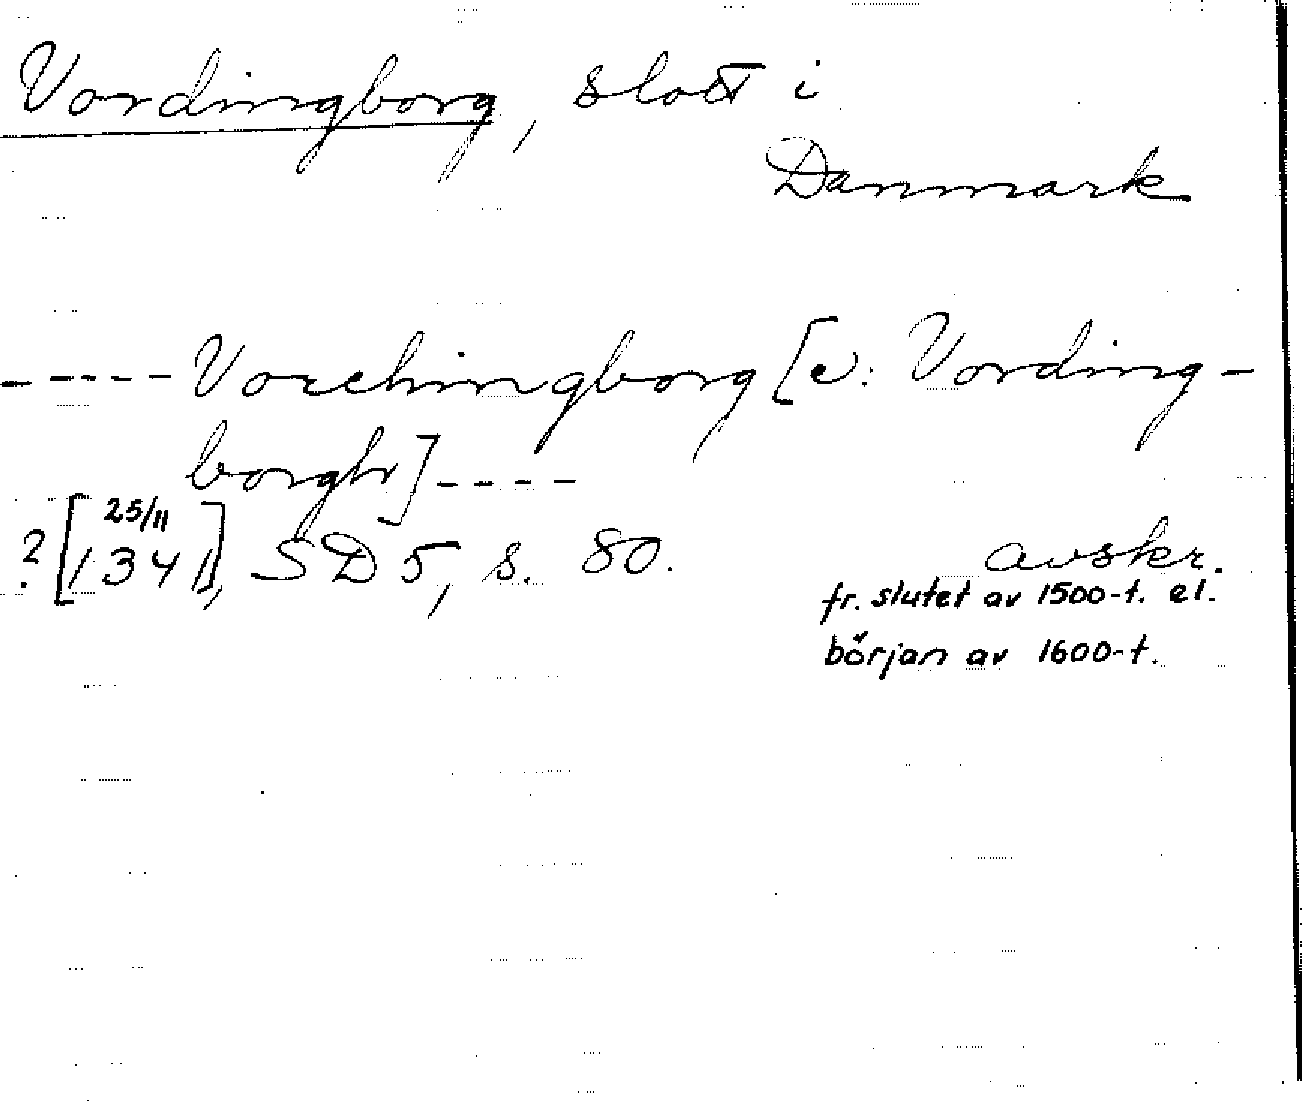 Vordingborg, slott i
Danmark
----- Vorchingborg [ɔ: Vording-
borgh] ----
? [25/11
1341], SD 5, s. 80. avskr.
fr. slutet av 1500-t. el.
början av 1600-t.